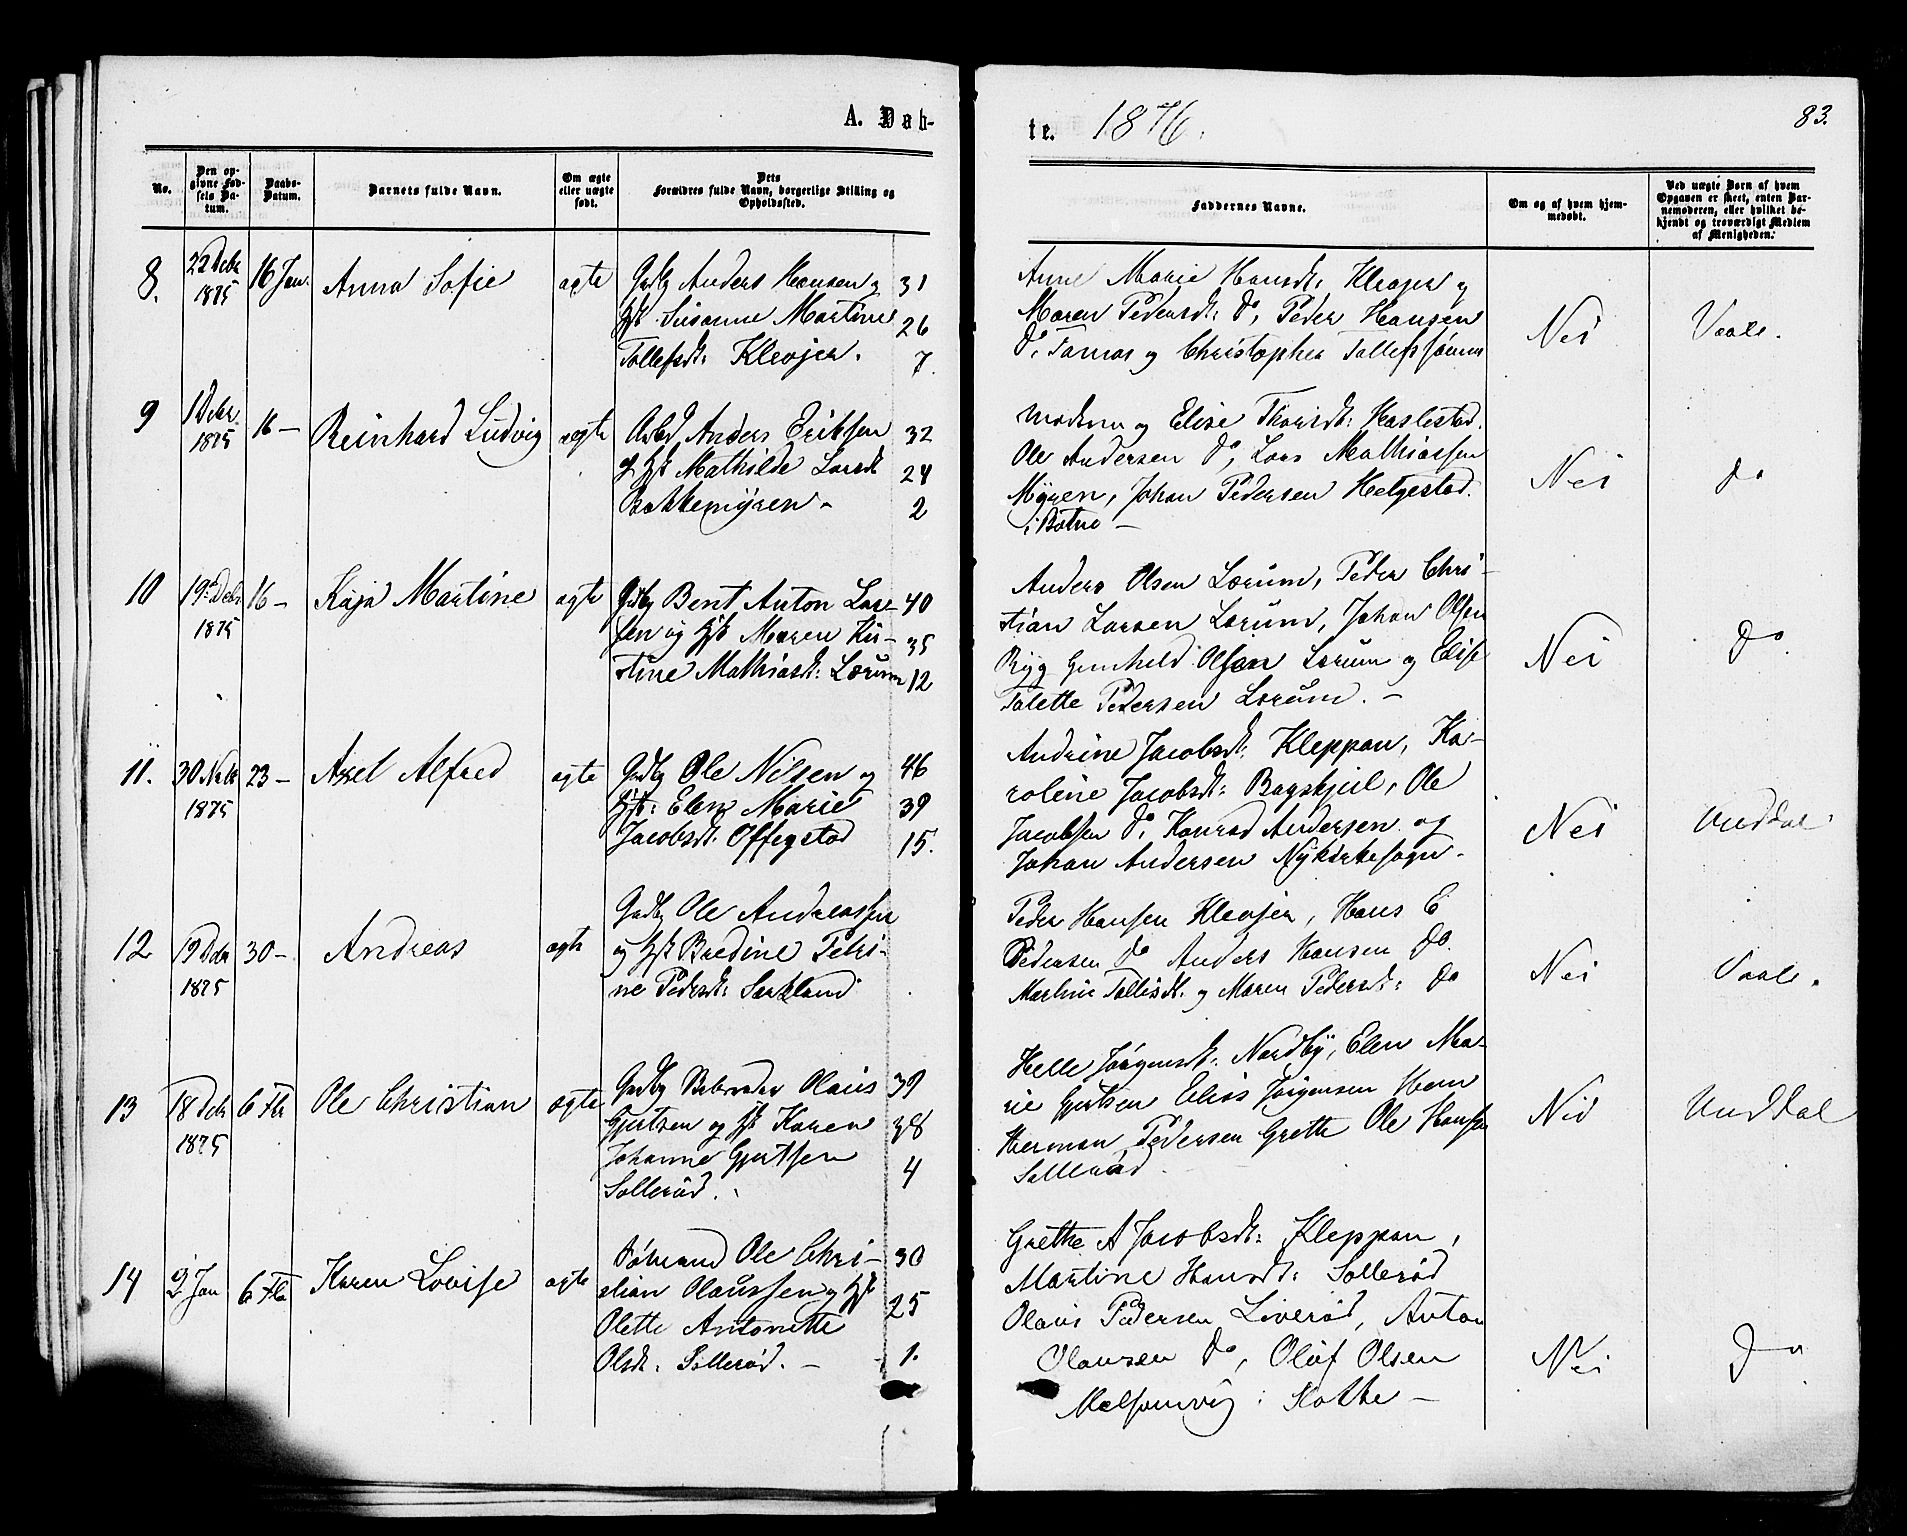 A. Døb-
te. 1876.
83.
No.
Den op-
givne Fød-
sels Da-
tum.
Daabs-
Datum.
Barnets fulde Navn.
Om ægte
eller uægte
født.
Dets
Forældres fulde Navn, borgerlige Stilling og
Opholdssted.
Faddernes Navne.
Om og af hvem hjem-
medøbt.
Ved uægte Børn af hvem
Opgaven er skeet, enten Bar-
nemoderen, eller hvilket be-
kjendt og troværdigt Medlem
af Menigheden.
8.
22 Debr
1875
16 Jan.
Anna Sofie
ægte
Gbr Anders Hansen og 31
Hst. Susanne Martine 26
Tollefsdt: Klevjer. 7.
Anne Marie Hansdt: Klevjer og
Maren Pedersdt: Do, Peder Hansen
Do, Tomas og Christopher Tollefssønner
Nei
Vaale.
9
1 Debr.
1875
16 —
Reinhard Ludvig
ægte
Arbd Anders Eriksen 32
og Hst Mathilde Larsdt 24
Bakkemyren - 2
Moderen og Elise Thorisdt: Haslestad.
Ole Andersen Do, Lars Mathiassen
Myren, Johan Pedersen Helgestad.
i Botne —
Nei
Do
10
19 Debr
1875
16 —
Kaja Martine
ægte
Gbr Bent Anton Lar- 40
sen og Hst Maren Kir- 35
stine Mathiasdt: Lærum 12
Anders Olsen Lærum, Peder Chri-
stian Larsen Lærum, Johan Olsen
Ryg Gunhild Olsen Lærum og Elise
Talette Pedersen Lærum. —
Nei
Do
11.
30 Nvbr
1875
23 —
Axel Alfred
ægte
Gbr Ole Nilsen og 46
Hst: Elen Marie 39
Jacobsdt: Offigstad 15.
Andrine Jacobsdt: Kleppan, Ka-
roline Jacobsdt: Bagskjeil, Ole
Jacobsen Do, Konrad Andersen og
Johan Andersen Nykirkesogn -
Nei
Unddal
12
19 Debr
1875
30 —
Andreas
ægte
Gbr Ole Andreassen
og Hst Bredine Petri-
ne Pedersdt: Sarkland
Peder Hansen Klevjer, Hans E
Pedersen Do Anders Hansen Do.
Martine Tollefsdt. og Maren Pedersdt: Do
Nei
Vaale.
13
18 Debr
1875
6 Fbr
Ole Christian
ægte
Gbr Olaus 39
Gjertsen og Hst Karen 38
Johanne Gjertsen 4
Sollerød.
Helle Jørgensdt: Nordby, Elen Ma-
rie Gjertsen Elias Jørgensen Hem
Herman Pedersen Grette Ole Hansen
Sollerød
Nei
Unddal
14
2 Jan
6 Fbr
Karen Lovise
ægte
Sømand Ole Chri- 30
stian Olaussen og Hst 25
Olette Antonette
Olsdt: Sollerød. — 1.
Grethe A Jacobsdt: Kleppan,
Martine Hansdt: Sollerød
Olaus Pedersen Liverød, Anton
Olausen Do, Olaf Olsen
Melsomvig i Slotte —
Nei
Do